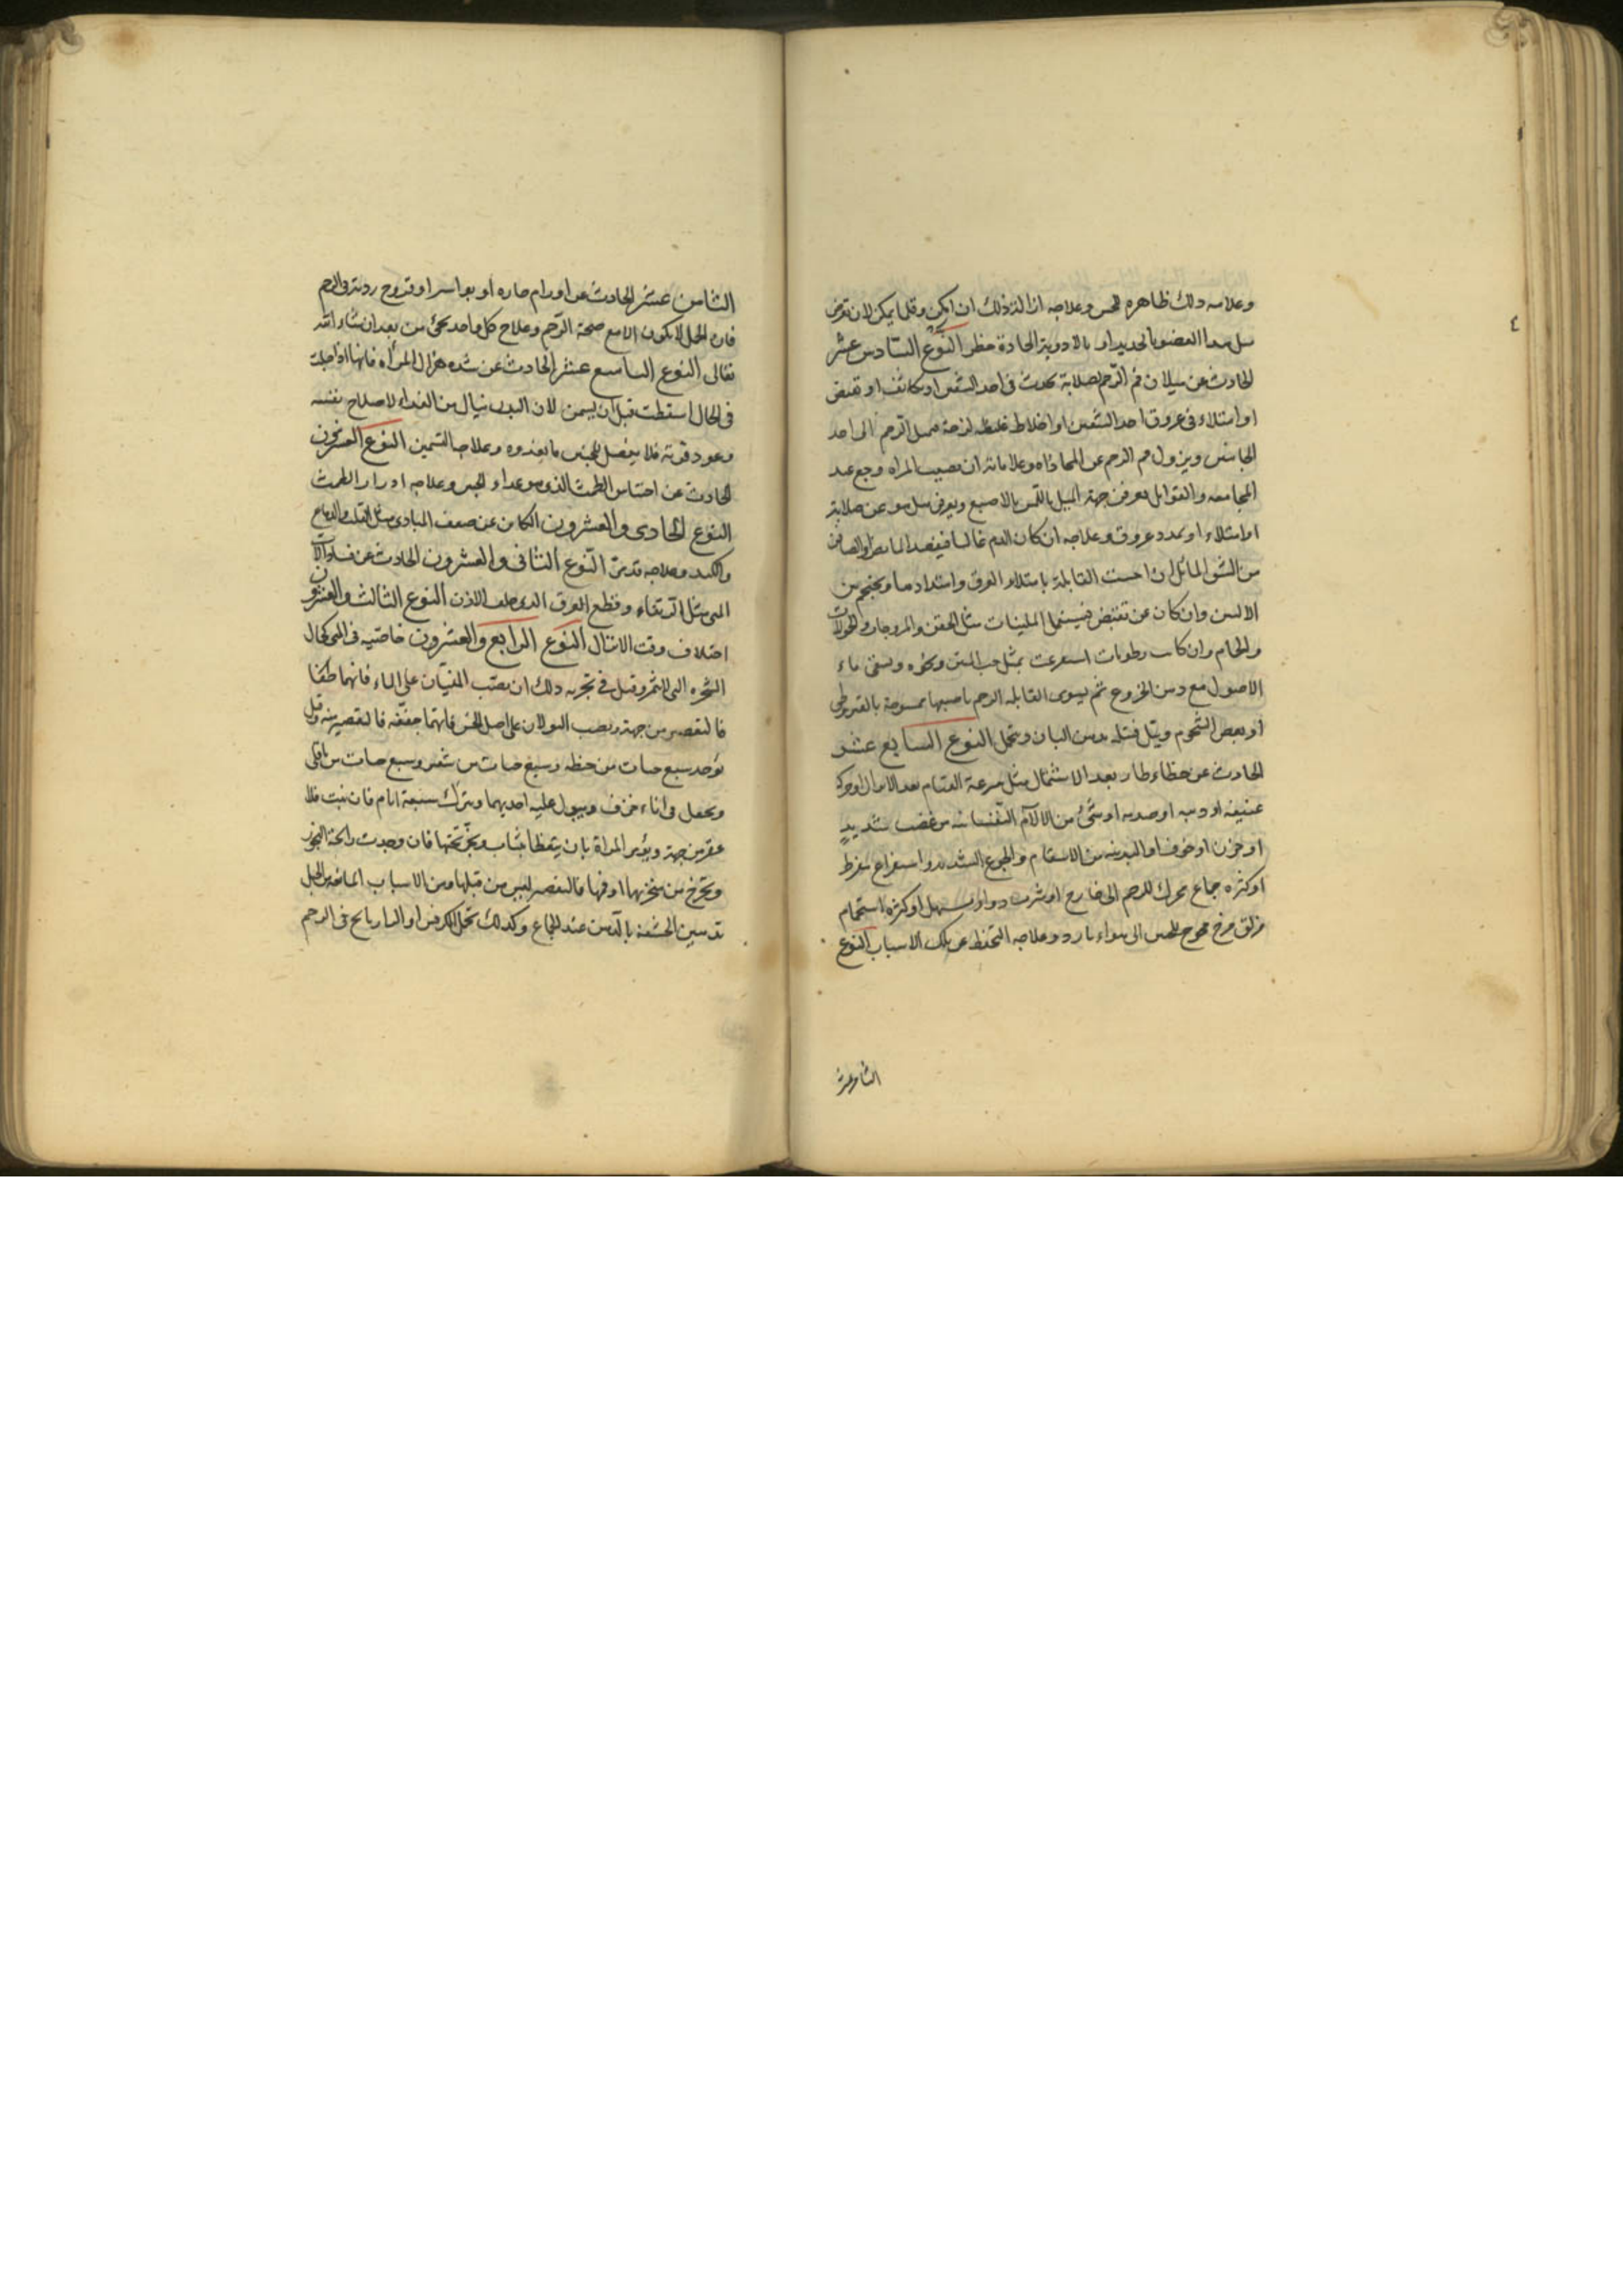 ٤
وعلامه دلك ظاهره للحس وعلاجه ازالة ذلك ان امكن وقلما يمكن لان تعرض
مثل هدا العضو بالحديد او بالادوية الحادة خطر النوع السادس عشر
الحادث عن ميلان فم الرحم لصلابة تحدث فى احد الشقين او تكاثف او تقبض
او امتلاء فى عروق احد الشقين او اخلاط غليظه لزجة تميل الرحم الى احد
الجانبين ويزول فم الرحم عن المحاذاه وعلاماته ان يصيب المراه وجع عند
المجامعه والقوابل يعرفن جهة الميل باللمس بالاصبع ويعرفن هل هو عن صلابة
او امتلاء او تمدد عروق وعلاجه ان كان الدم غالبا فيفصد المابض او الصافن
من الشق المائل اذا احست القابلة بامتلاء العرق وامتدادها ويحتجم من
الاليين وان كان عن تقبض فيستعمل الملينات مثل الحقن والمروخات والحمولات
والحمام وان كانت رطوبات استفرغت بمثل حب المنتن ونحوه ويسقى ماء
الاصول مع دهن الخروع ثم يسوى القابله الرحم باصبعها ممسوحة بالقيروطى
او بعض الشحوم ويبل فتيله بدهن البان وتحمل النوع السابع عشر
الحادث عن خطاء طار بعد الاشتمال مثل سرعة القيام بعد الانزال او حركة
عنيفه او وثبه او صدمه او شئ من الالام النفسانيه من غضب شديد
او حزن او خوف او البدنيه من الاسقام والجوع الشديد واستفراغ مفرط
او كثره جماع محرك للرحم الى خارج او شرب دواء مسهل او كثرة استحمام
مزلق مرخ محوج للجنين الى هواء بارد وعلاجه التحفظ عن تلك الاسباب النوع
الثامن عشر
الثامن عشر الحادث عن اورام حاره او بواسير او قروح رديه فى الرحم
فان الحمل لا يكون الا مع صحة الرحم وعلاج كل واحد يجئ من بعد ان شاء الله
تعالى النوع التاسع عشر الحادث عن شده هزال المرأه فانها اذا حبلت
فى الحال اسقطت قبل ان يسمن لان البدن ينال من الغداء لاصلاح نفسه
وعود قوته فلا يفضل للجنين ما يغذوه وعلاجه التسمين النوع العشرون
الحادث عن احتباس الطمث الذى هو غداء الجنين وعلاجه ادرار الطمث
النوع الحادى والعشرون الكائن عن ضعف المبادى مثل القلب والدماغ
والكبد وعلاجه قد مر النوع الثانى والعشرون الحادث عن فساد الات
المنى مثل الارتخاء وقطع العرق الدى خلف الاذن النوع الثالث والعشرون
اختلاف وقت الانزال النوع الرابع والعشرون خاصيه فى المنى كحال
الشجره التى لا تثمر وقيل فى تجربه دلك ان يصب المنيان على الماء فايهما طفا
فالتقصير من جهته ويصب البولان على اصل الخس فايهما جففه فالتقصير منه وقيل
تؤخذ سبع حبات من حنطه وسبع حبات من شعير وسبع حبات من باقلى
ويجعل فى اناء خزف ويبول عليه احديهما ويترك سبعة ايام فان نبت فلا
عقر من جهته ويؤمر المراة بان يتغطا بثياب ويبخر تحتها فان وجدت رائحة البخور
ويخرج من منخريها او فمها فالتقصير ليس من قبلها ومن الاسباب المانعه من الحبل
تدهين الحشفة بالدهن عند الجماع وكدلك تحمل الكرفس او السارياح فى الرحم